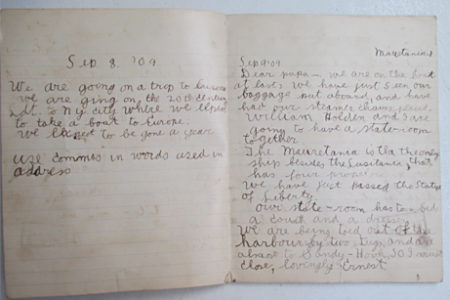 Sep 8 '09
We are going on a trip to Europe
we are going on the 20th Century
Ltd. to N.Y city where we
to take a boat to Europe.
We to be gone a year
use commas in words used in
address
Mauretania
Sep 9 '09
Dear papa — we are on the boat
at last. We have just seen our
baggage put aboard and have
had our steamer chairs
William Holden and I are
going to have a state-room
together.
The Mauretania is the only
ship besides the Lusitania, that
has four
We have just passed the Statue
of Liberty
our state-room has a bed
a couch and a dresser.
We are being toed out of the
harbour by two tugs, and are
almost to Sandy-Hook, so I must
close, lovingly Ernest